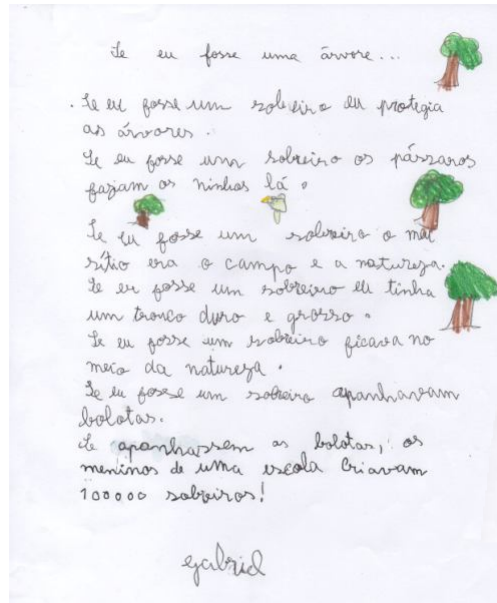 Se eu fosse uma árvore...
. Se eu fosse um sobreiro eu protegia
as árvores.
Se eu fosse um sobreiro os pássaros
faziam os ninhos lá.
Se eu fosse um sobreiro o meu
sítio era o campo e a natureza.
Se eu fosse um sobreiro eu tinha
um tronco duro e grosso.
Se eu fosse um sobreiro ficava no
meio da natureza.
Se eu fosse um sobreiro apanhavam
bolotas.
Se apanhassem as bolotas, os
meninos de uma escola criavam
100000 sobreiros!
Gabriel